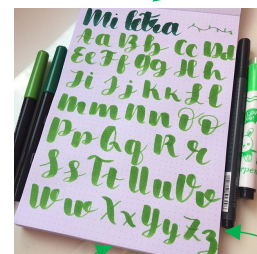 Mi letra
Aa Bb Cc Dd
Ee Ff Gg Hh
Ii Jj Kk Ll
Mm Nn Oo
Pp Qq Rr
Ss Tt Uu Vv
Ww Xx Yy Zz